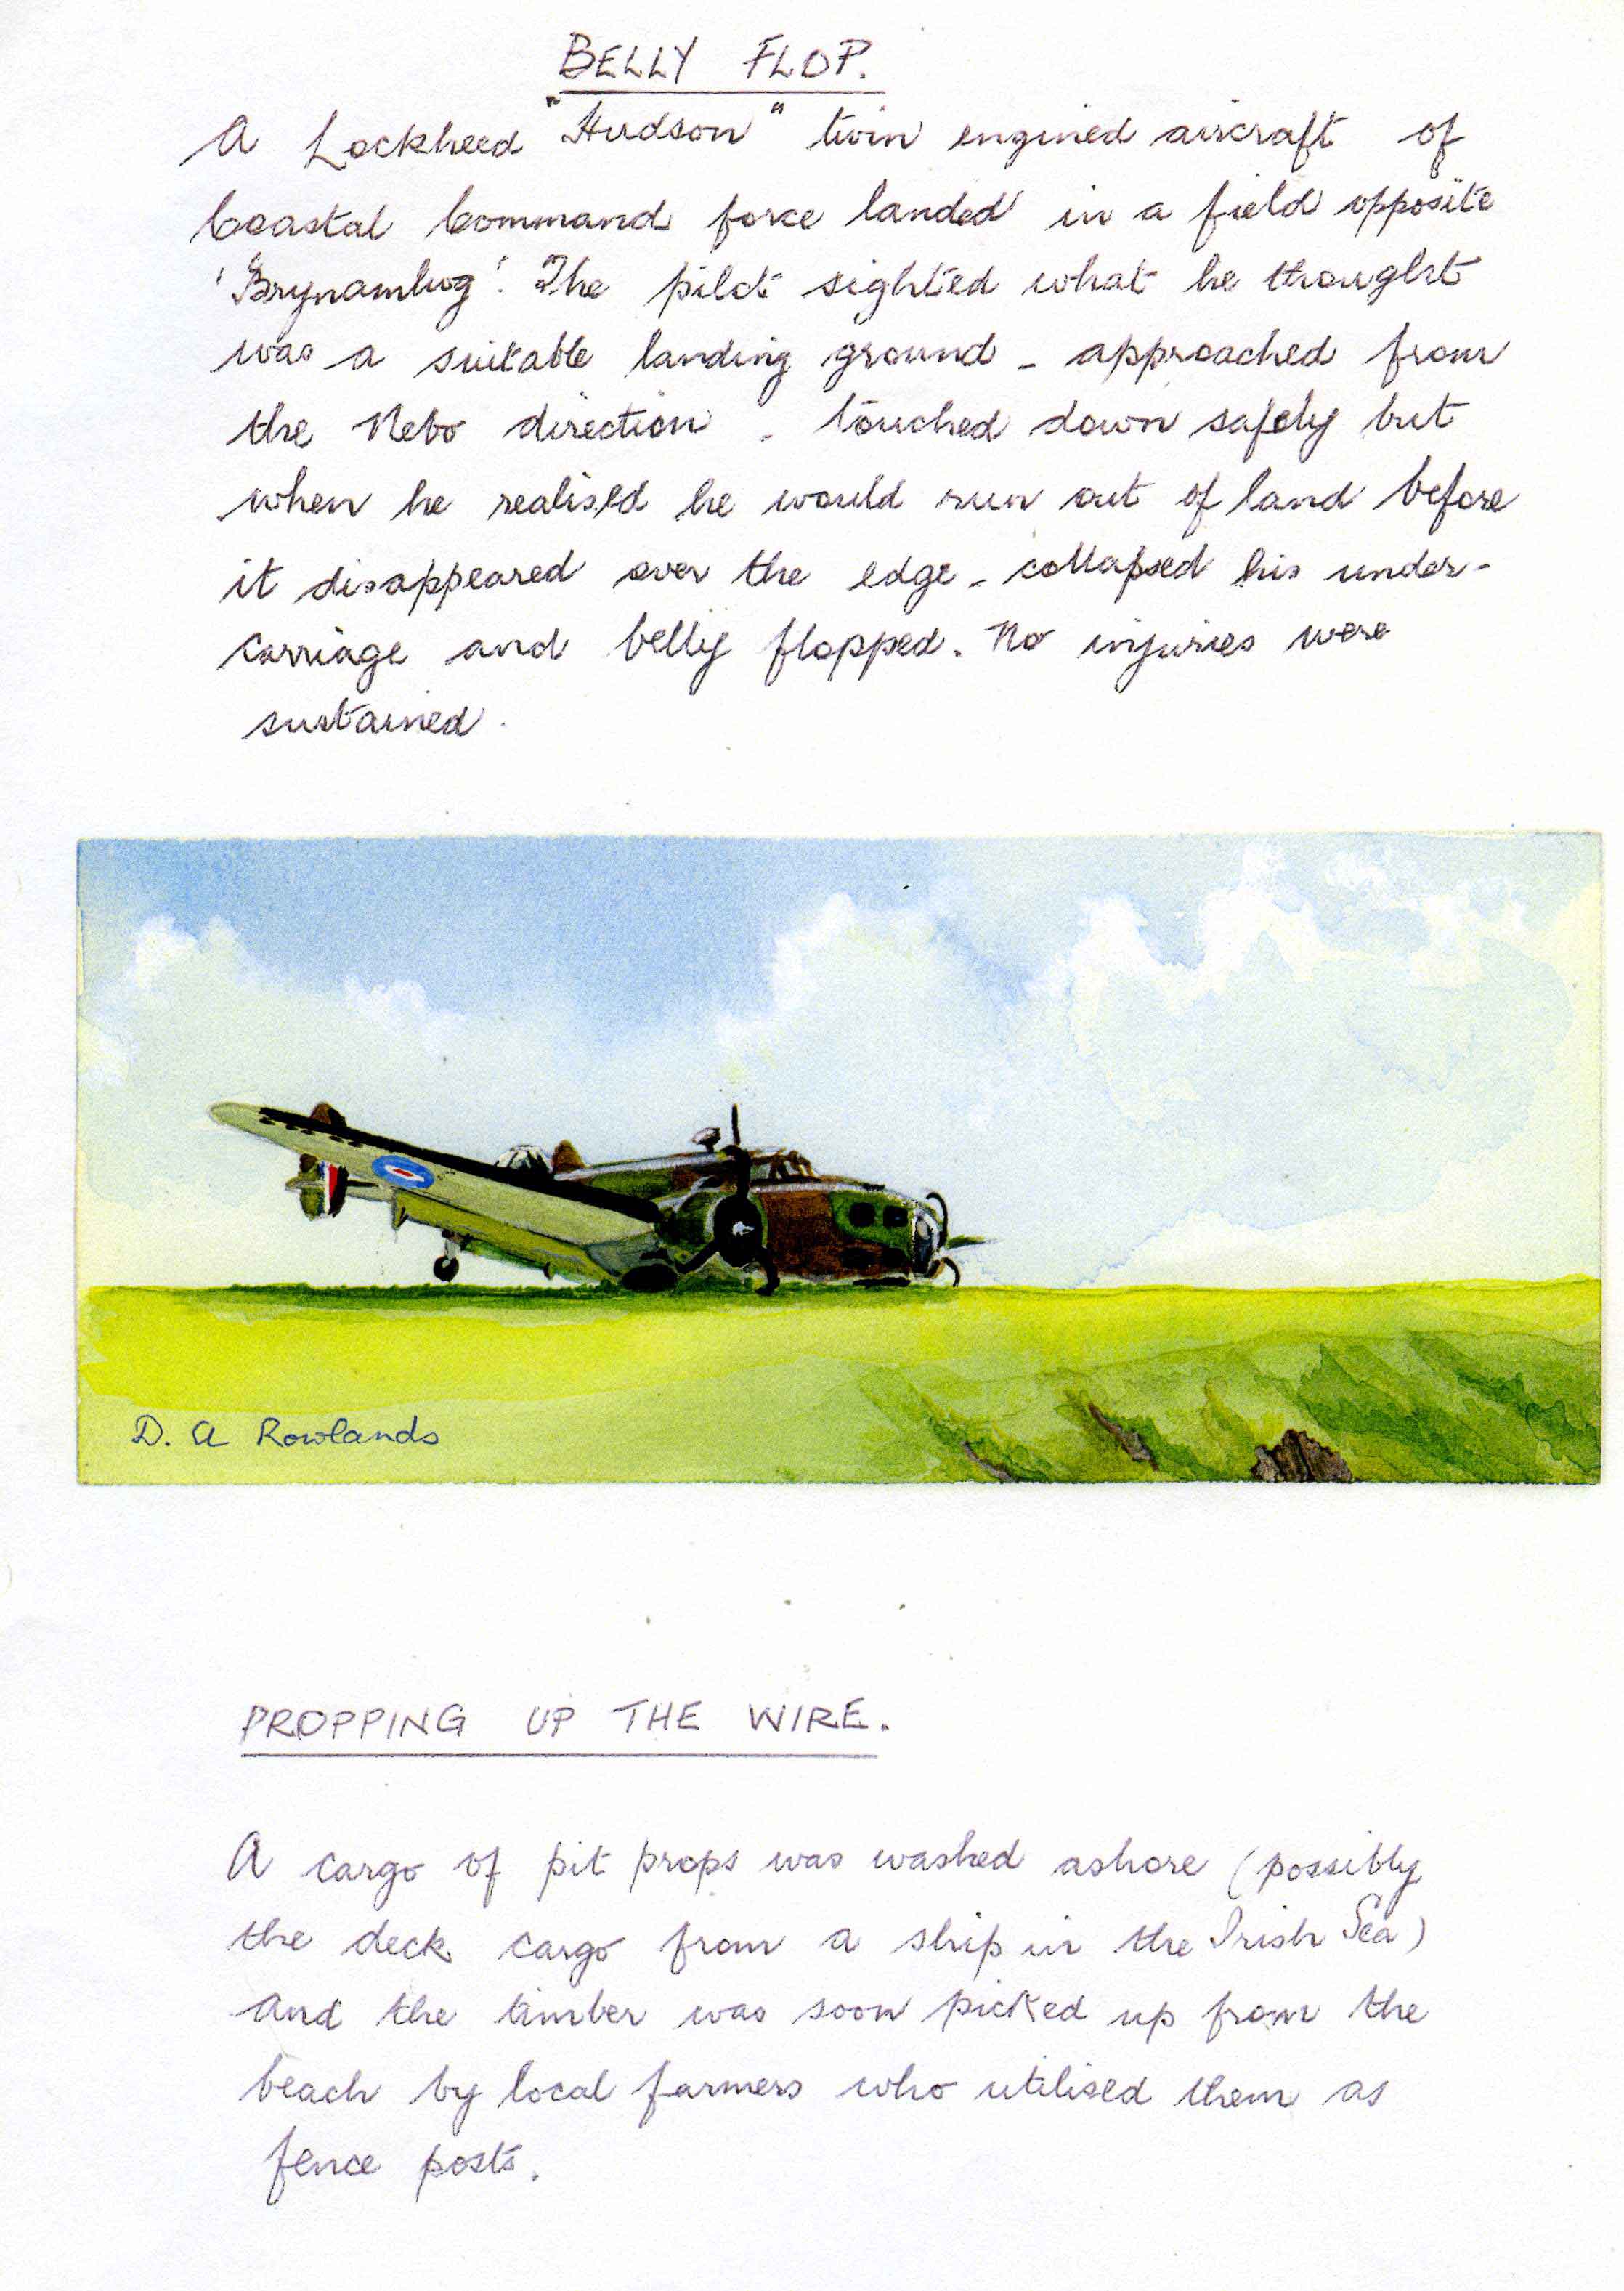 BELLY FLOP.
A Lockheed "Hudson" twin engined aircraft of
Coastal Command force landed in a field opposite
'Brynamlwg'. The pilot sighted what he thought
was a suitable landing ground - approached from
the Nebo direction - touched down safely but
when he realised he would run out of land before
it disappeared over the edge - collapsed his under-
carriage and belly flopped. No injuries were
sustained.
D. A Rowlands
PROPPING UP THE WIRE.
A cargo of pit props was washed ashore (possibly
the deck cargo from a ship in the Irish Sea)
and the timber was soon picked up from the
beach by local farmers who utilised them as
fence posts.